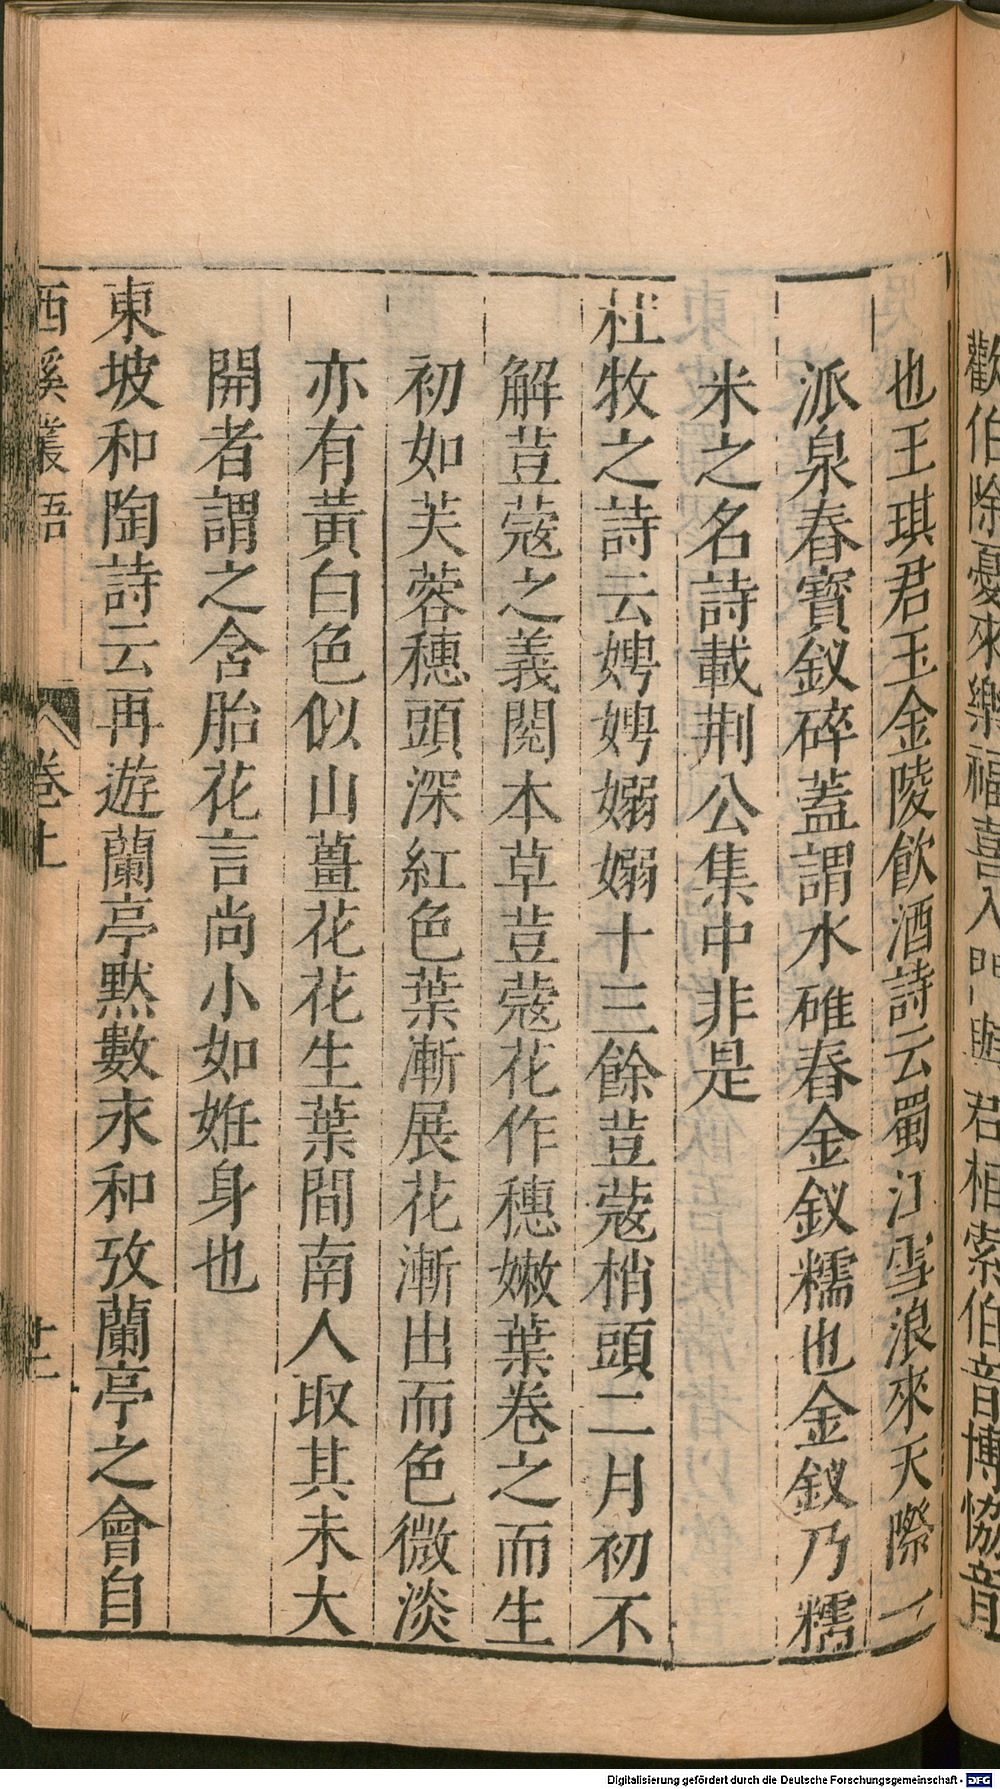 歡伯除憂來樂福喜入門與君相索伯音博協音
也王琪君玉金陵飲酒詩云蜀江雪浪來天際一
派泉舂寶釵碎蓋謂水碓舂金釵糯也金釵乃糯
米之名詩載荆公集中非是
杜牧之詩云娉娉嫋嫋十三餘荳蔻梢頭二月初不
解荳蔻之義閱本草荳蔻花作穗嫩葉卷之而生
初如芙蓉穗頭深紅色葉漸展花漸出而色微淡
亦有黃白色似山薑花花生葉間南人取其未大
開者謂之含胎花言尚小如姙身也
東坡和陶詩云再遊蘭亭默數永和攷蘭亭之會自
西溪叢語 卷上 廿二
Digitalisierung gefördert durch die Deutsche Forschungsgemeinschaft - DFG